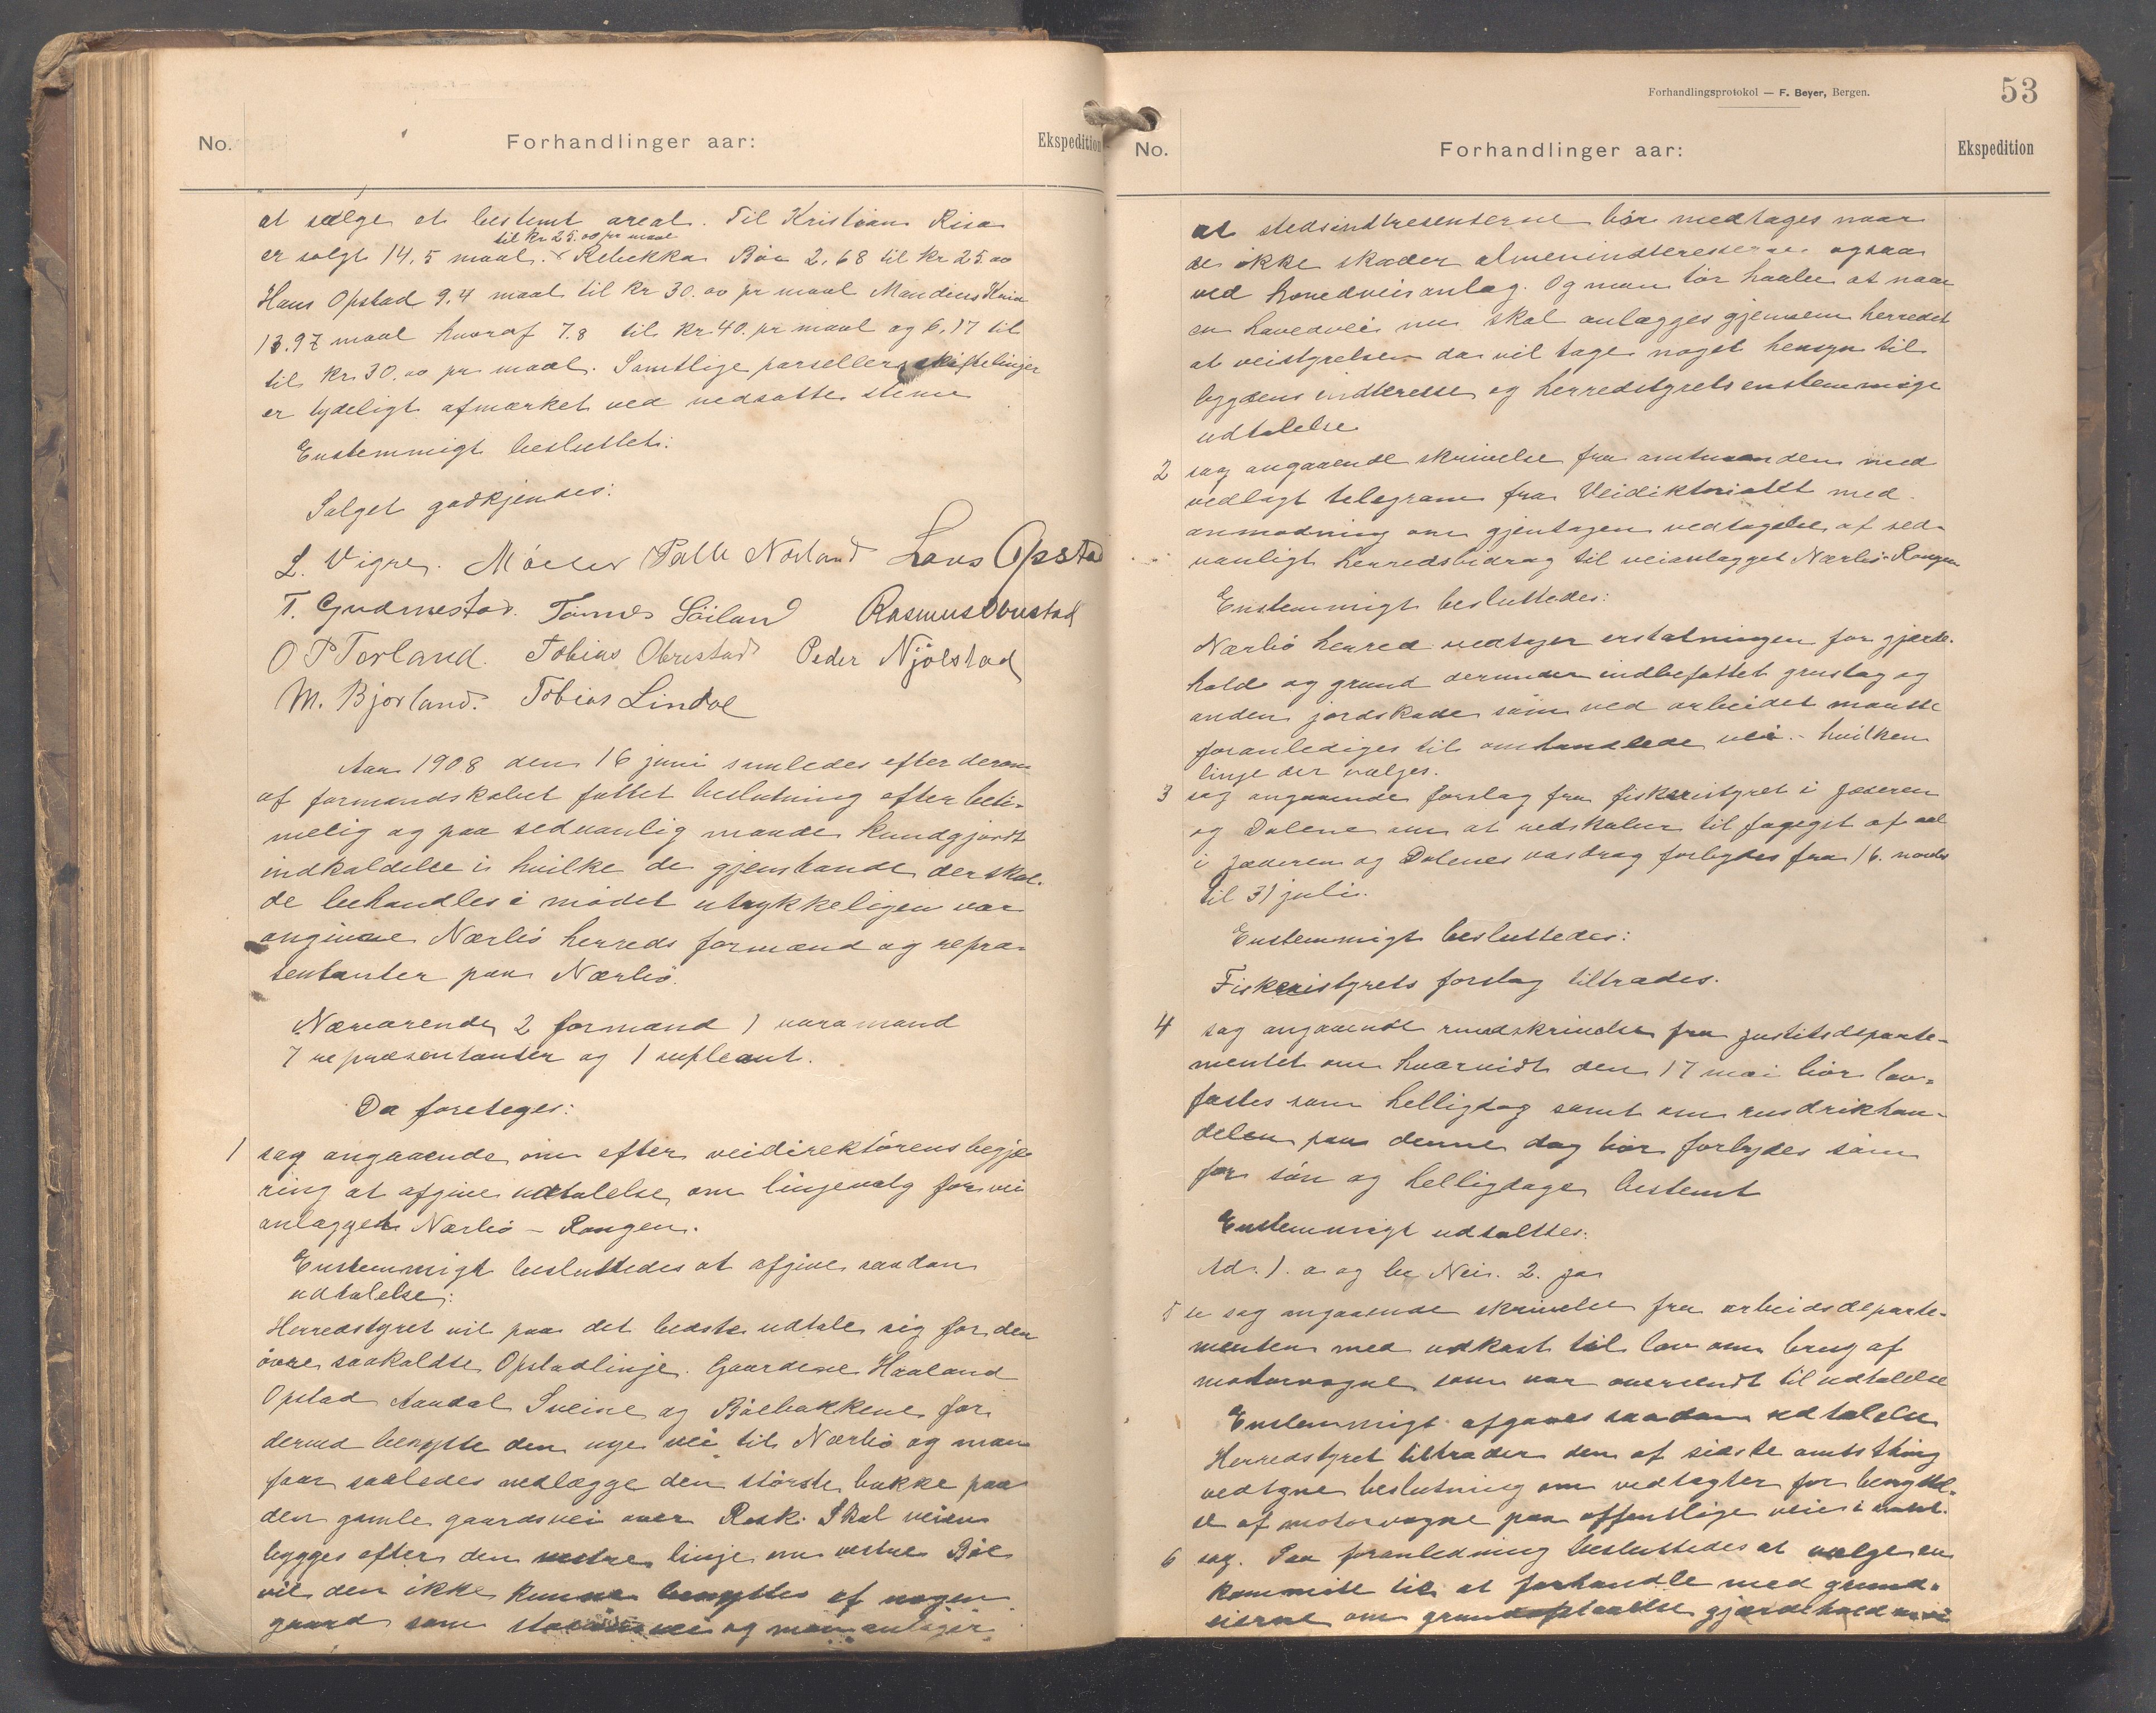 No.
Forhandlinger aar:
Ekspedition
at sælge et bestemt areal. Til Kristian Risa
til Kr 25.00 pr maal
er solgt 14.5 maal. Rebekka Böe 2.68 til Kr 25.00
Hans Opstad 9.4 maal til Kr 30.00 pr maal Mandius
13.97 maal hvoraf 7.8 til Kr 40. pr maal og 6.17 til
til Kr 30.00 pr maal. Samtlige parseller skiftelinjer
er tydeligt afmærket ved nedsatte stene
Enstemmigt besluttet:
Salget godkjendes:
L. Vigre. Möller Palle Norland Lars Opstad
T. Gudmestad. Tönnes Söiland Rasmus Obrestad
O P Torland. Tobias Obrestad Peder Njölstad
M. Bjorland. Tobias Lindal
Aar 1908 den 16 juni samledes efter derom
af formandskabet fattet beslutning efter beti-
melig og paa sedvanlig maade kundgjordt
indkaldelse i hvilke de gjenstande der skul-
de behandles i mödet utrykkeligen var
angivne Nærbö herreds formænd og repræ-
sentanter paa Nærbö.
Nærværende 2 formænd 1 varamand
7 repræsentanter og 1 supleant.
Da foretoges:
1 sag angaaende om efter veidirektörens begjæ
ring at afgive udtalelse om linjevalg for vei
anlægget Nærbö - Rongen.
Enstemmigt besluttedes at afgive saadan
udtalelse:
Herredstyret vil paa det bedste udtale sig for den
övre saakaldte Opstadlinje. Gaardene Haaland
Opstad Aandal Sveine og Böebakkene for
derved benytte den nye vei til Nærbö og man
faar saaledes nedlægge den störste bakke paa
den gamle gaardsvei over Rosk. Skal veien
bygges efter den vestre linje om vestre Böe
vil den ikke kunne benyttes af nogen
gaard som vei og man anlægger
Forhandlingsprotokol — F. Beyer, Bergen.
53
No.
Forhandlinger aar:
Ekspedition
at stedsindtresenterne bör medtages naar
de ikke skader almenindteresserne ogsaa
ved hovedveisanlæg. Og man tör haabe at naar
en hovedvei nu skal anlægges gjennem herredet
at veistyrelsen da vil tage noget hensyn til
bygdens indteresse og herredstyrets enstemmige
udtalelse
2 sag angaaende skrivelse fra amtmanden med
vedlagt telegram fra Veidiktoriatet med
anmodning om gjentagen vedtagelse af sed-
vanligt herredsbidrag til veianlægget Nærbö-Rongen
Enstemmigt besluttedes:
Nærbö herred vedtager erstatningen for gjærde-
hold og grund derunder indbefattet grustag og
anden jordskade som ved arbeidet maatte
foranlediges til omhandlede vei - hvilken
linje der vælges.
3 sag angaaende forslag fra fiskeristyret i Jæderen
og Dalene om at redskaber til fagegst af aal
i Jæderen og Dalenes vasdrag forbydes fra 16. novbr
til 31 juli.
Enstemmigt besluttedes:
Fiskeristyrets forslag tiltrædes.
4 sag angaaende rundskrivelse fra justitsdeparte-
mentet om hvorvidt den 17 mai bör lov-
fæstes som helligdag samt om rusdrikhan-
delen paa denne dag bör forbydes som
for sön og helligdage bestemt
Enstemmigt udtaltes:
Ad. 1. a og be Nei. 2. ja
5 sag angaaende skrivelse fra arbeidsdeparte-
menten med udkast til lov om brug af
motorvogne som var oversendt til udtalelse
Enstemmigt afgaves saadan udtalelse
Herredstyret tiltræder den af sidste amtsthing
vedtagne beslutning om vedtægter for benyttel-
se af motorvogne paa offentlige veie i amtet.
6 sag. Paa foranledning besluttedes at vælge en
kommite til at forhandle med grund-
eierne om grundafstaaelse gjærdehold